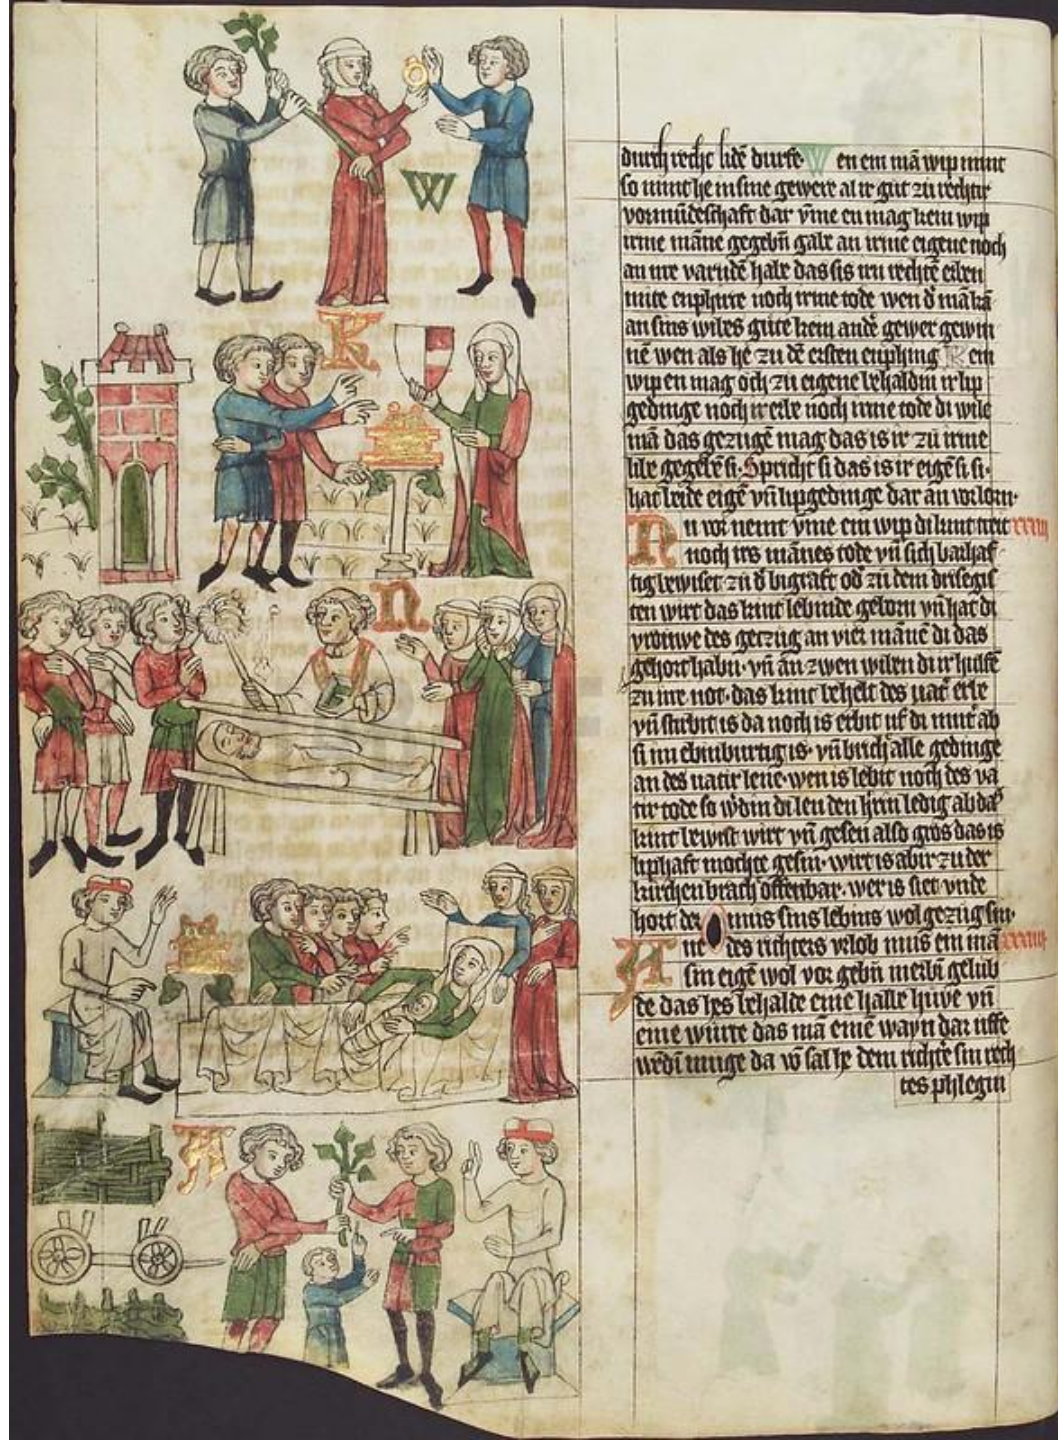 W
K
N
A
durch recht lidē durfe. Wen ein mā wip nimt
so nimt he in sine gewere al ir gut zu rechtir
vormūdeschaft dar vm̄e en mag kein wip
irme māne gegebn̄ gabe an irme eigene noch
an ire varndē habe das sis irn rechtē erben
mite enphure noch irme tode wen d̄ mā kā
an sins wibes gute kein andˀ gewer gewin
nē wen als he zu dē ersten enphing Kein
wip en mag och zu eigene behaldin ir lip
gedinge noch ir erbe noch irme tode di wile
mā das gezugē mag das is ir zu irme
libe gegebē si. Spricht si das is ir eigē si si
hat beide eigē vn̄ lipgedinge dar an vorlorn.
Nu vornemt vm̄e ein wip di kint treit xxxiii
noch irs māes tode vn̄ sich barhaf
tig bewiset zu d̄ bigraft od̄ zu dem drisegis
ten wirt das kint lebinde geborn vn̄ hat di
vrouwe des gezug an vier mānē di das
gehort habn̄ vn̄ an zwen wiben di ir hulfē
zu ire not. das kint behelt des vatˀ erbe
vn̄ stirbit is da noch is erbit uf di mutˀ ab
si im ebinburtig is. vn̄ brich alle gedinge
an des vatir lene. wen is lebit noch des va
tir tode so wˀdin di len den hˀrin ledig ab da
kint bewist wirt vn̄ gesen also gros das is
liphaft mochte gesin. wirt is abir zu der
kirchen bracht offenbar. wer is siet vnde
hort der mus sins lebins wol gezug sin.
Ane des richters vrlob mus ein mā xxxiiii
sin eigē wol vorgebn̄ mit erbn̄ gelub
de das hes behalde eine halbe huve vn̄
eine wurte das mā einē wayn dar uffe
wēdin muge da vō sal he dem richtˀe sin rech
tes phlegin